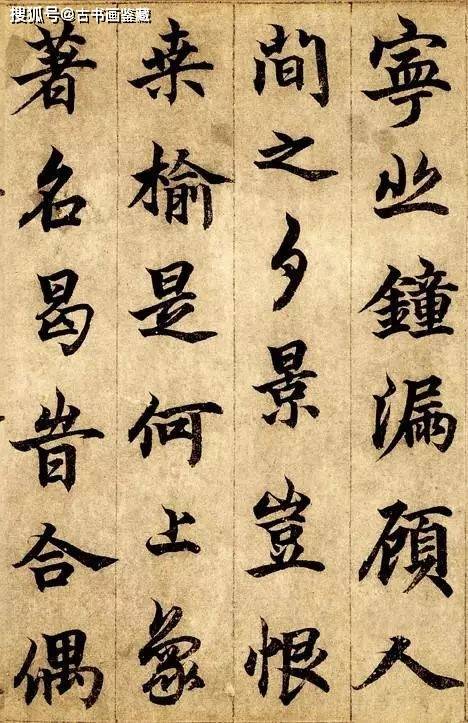 搜狐号@古书画鉴藏
寧止鐘漏顧人
間之夕景豈恨
桒榆是何上象
著名曷旹合偶